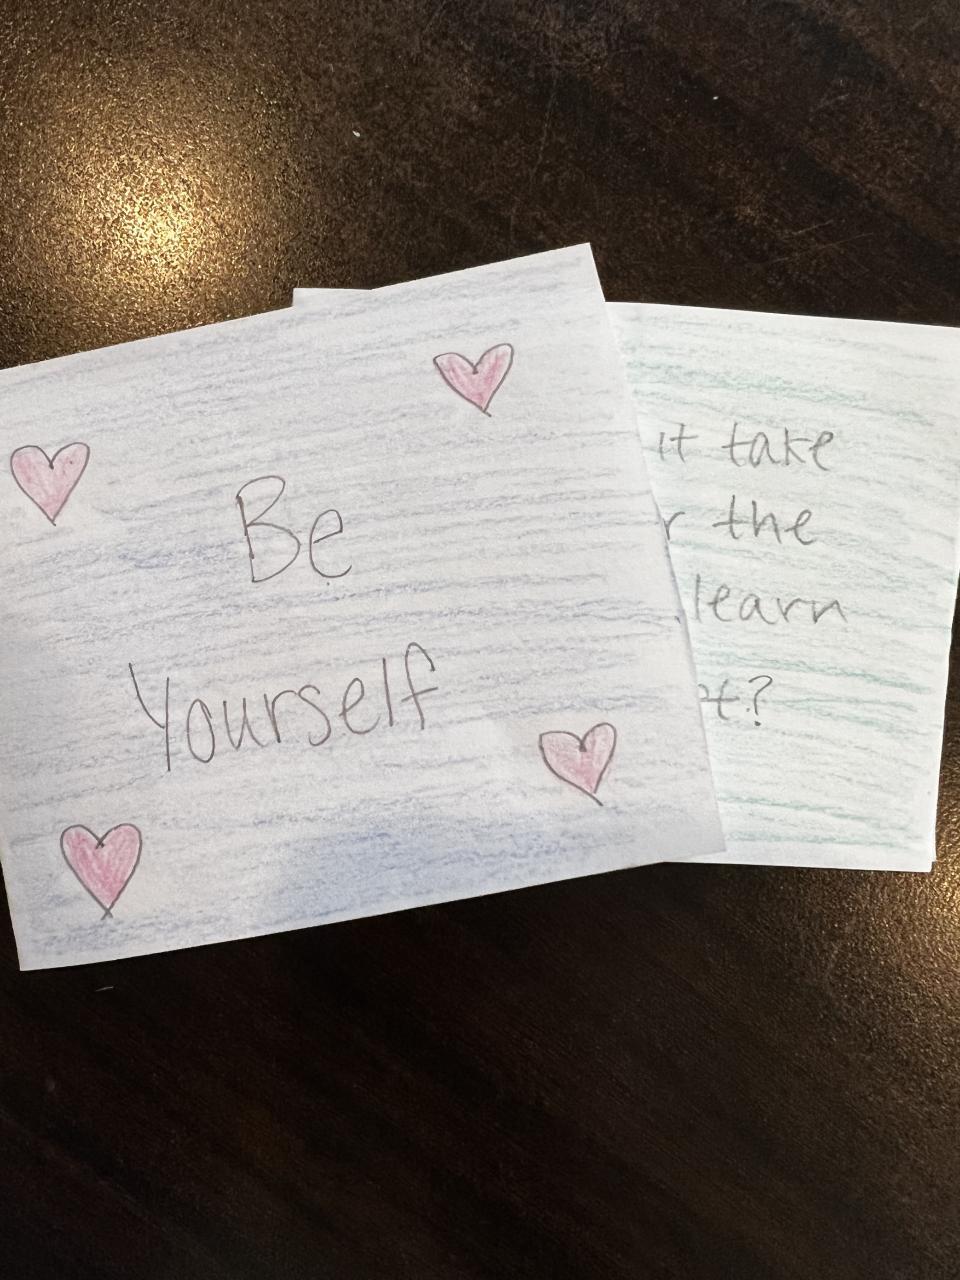 Be
Yourself
it take
the
learn